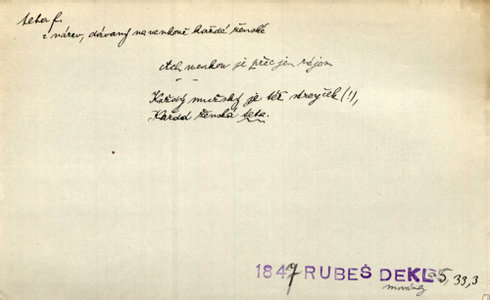 teta f.
i název, dávaný na venkově každé ženské
Ach venkov je přec jen rájem
Každý mužský je též strejček (!),
Každá ženská teta.
1847 RUBEŠ DEKL 5, 33, 3